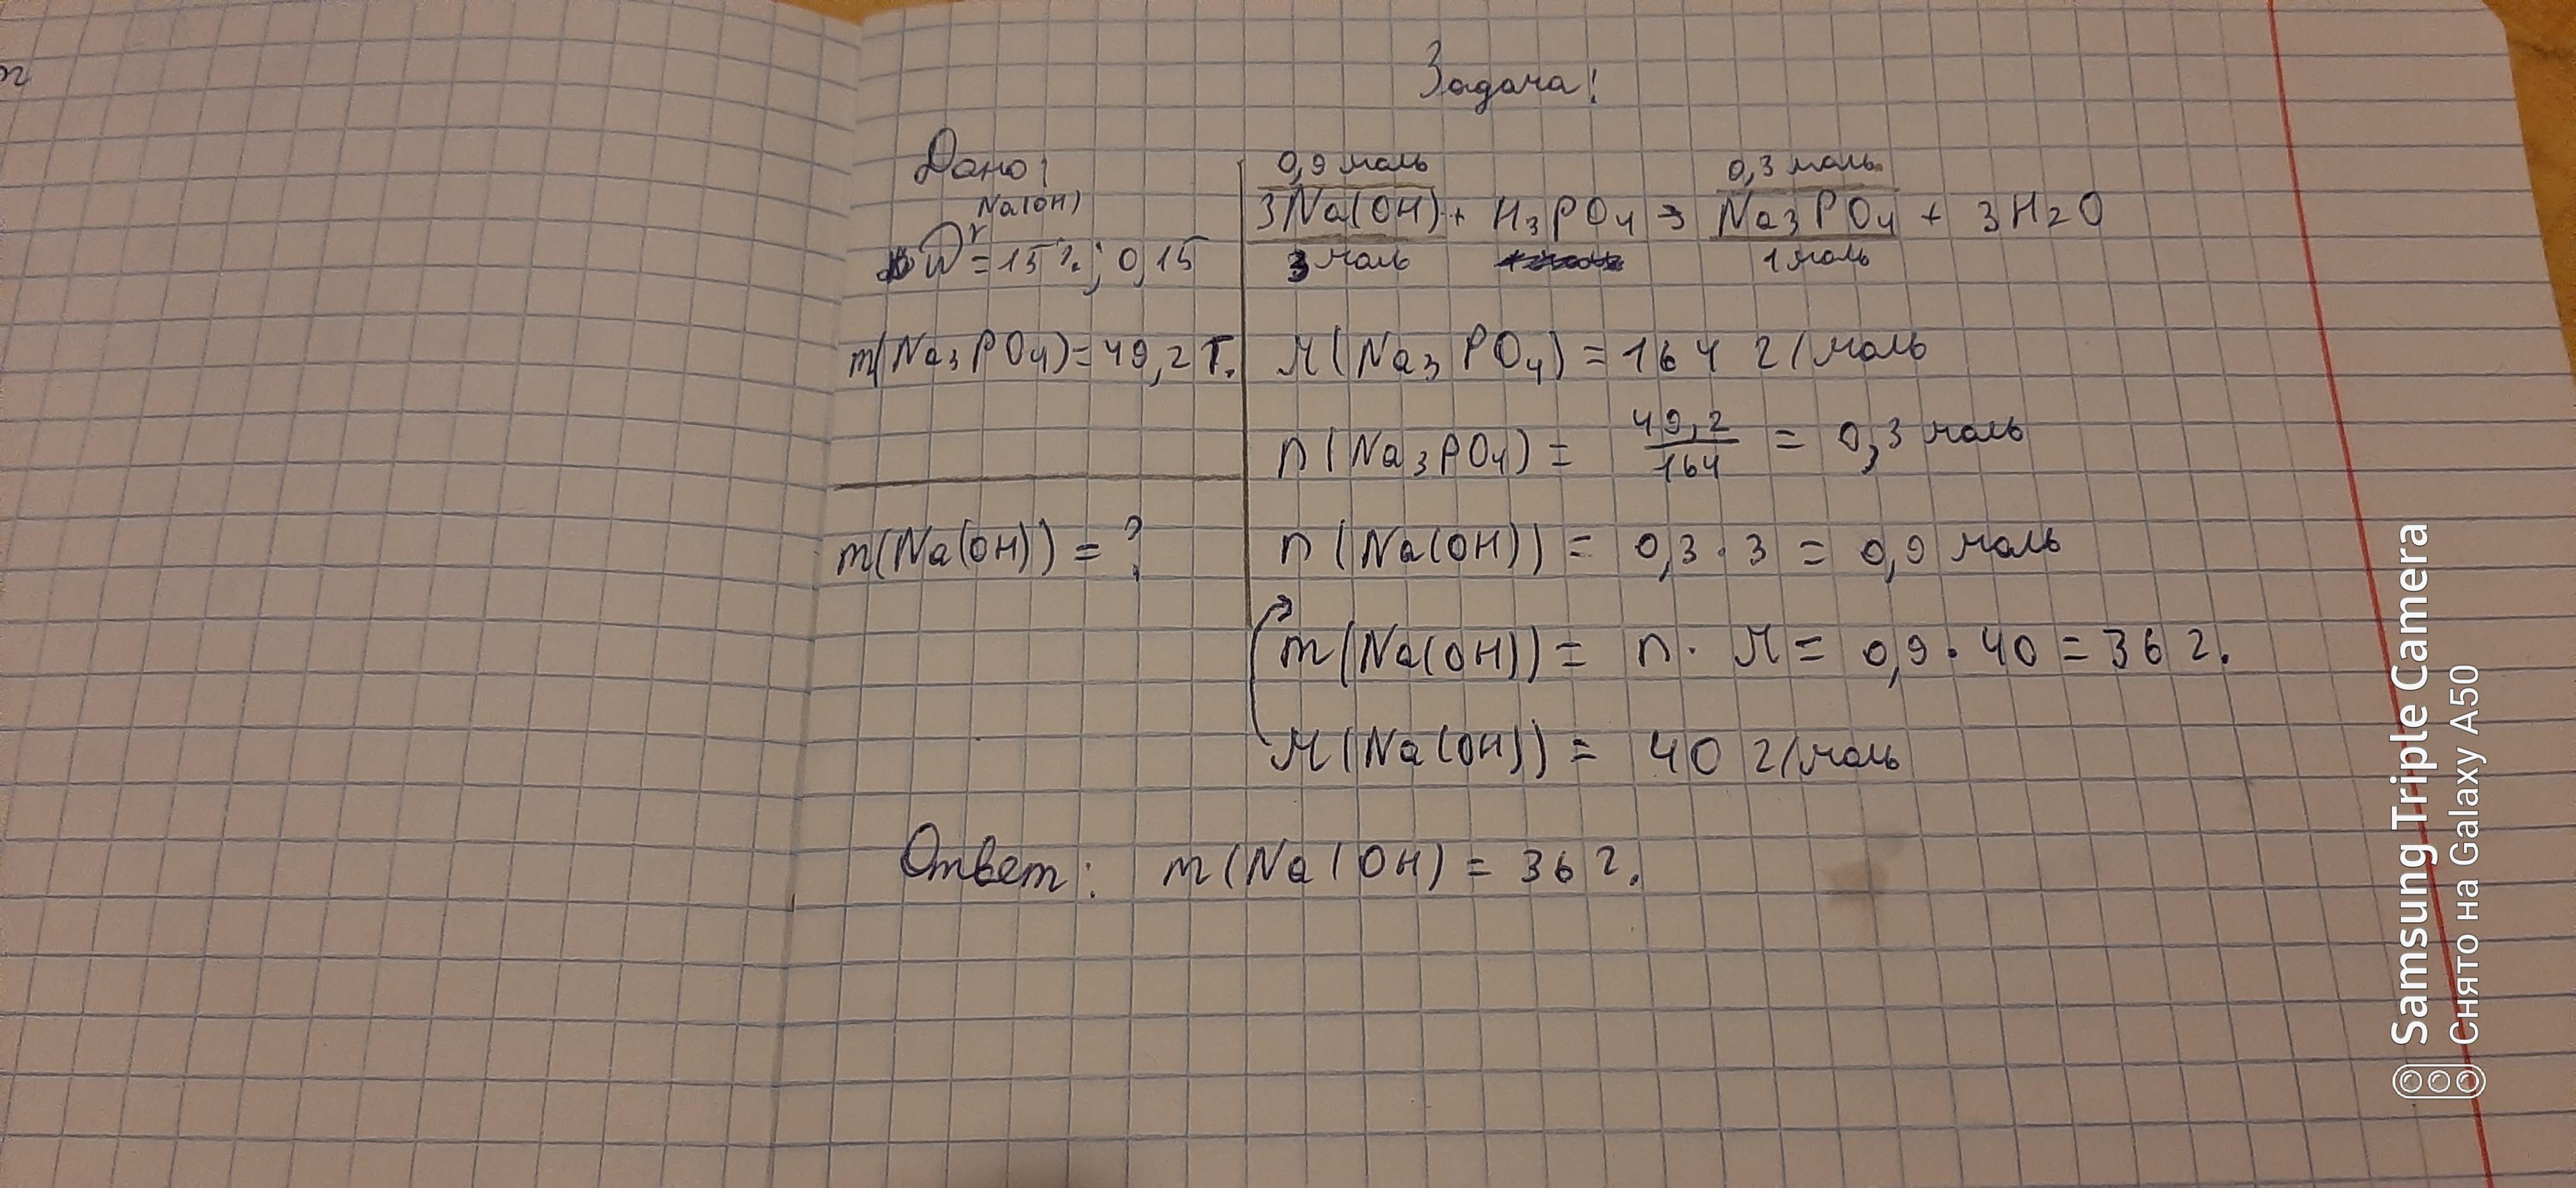 Задача!
Дано:
Na(OH)
W = 15%; 0,15
m(Na3PO4) = 49,2 г.
m(Na(OH)) = ?
0,9 моль 0,3 моль
3Na(OH) + H3PO4 → Na3PO4 + 3H2O
3 моль 1 моль
M(Na3PO4) = 164 г/моль
n(Na3PO4) = 49,2/164 = 0,3 моль
n(Na(OH)) = 0,3 · 3 = 0,9 моль
m(Na(OH)) = n · M = 0,9 · 40 = 36 г.
M(Na(OH)) = 40 г/моль
Ответ: m(Na(OH) = 36 г.
Samsung Triple Camera
Снято на Galaxy A50